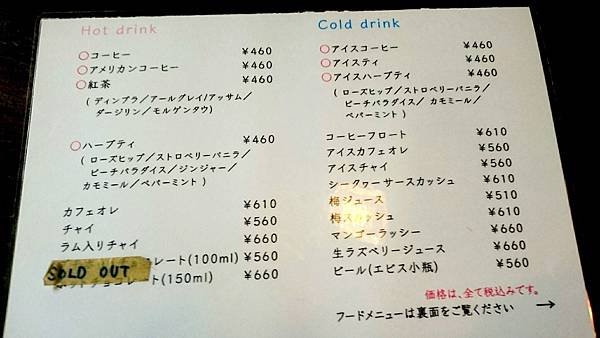 Hot drink
○コーヒー ¥460
○アメリカンコーヒー ¥460
○紅茶 ¥460
( ディンブラ/アールグレイ/アッサム/
ダージリン/モルゲンタウ)
○ハーブティ ¥460
( ローズヒップ/ストロベリーバニラ/
ピーチパラダイス/ジンジャー/
カモミール/ペパーミント )
カフェオレ ¥610
チャイ ¥560
ラム入りチャイ ¥660
レート(100ml) ¥560
SOLD OUT
ホットチョコレート(150ml) ¥660
Cold drink
○アイスコーヒー ¥460
○アイスティ ¥460
○アイスハーブティ ¥460
( ローズヒップ/ストロベリーバニラ/
ピーチパラダイス/ カモミール/
ペパーミント )
コーヒーフロート ¥610
アイスカフェオレ ¥560
アイスチャイ ¥560
シークヮーサースカッシュ ¥610
梅ジュース ¥510
梅スカッシュ ¥610
マンゴーラッシー ¥660
生ラズベリージュース ¥660
ビール(エビス小瓶) ¥560
価格は、全て税込みです。
フードメニューは裏面をご覧ください →